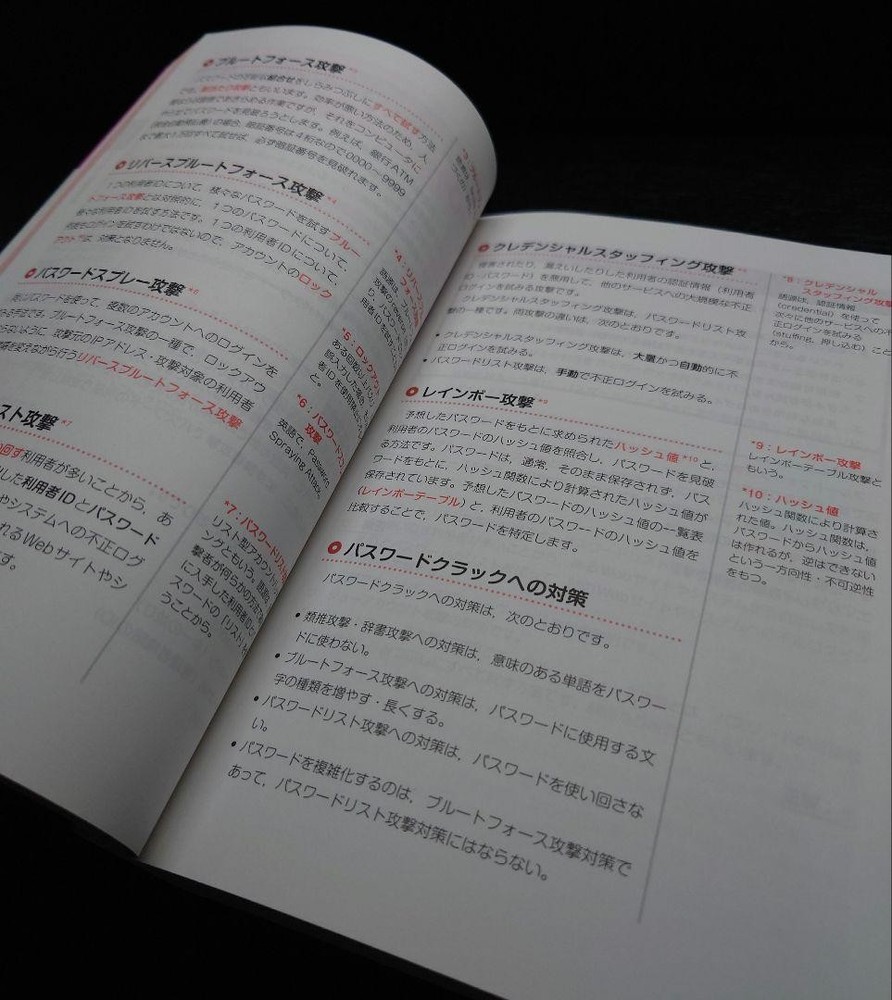 ブルートフォース攻撃
組合せをしらみつぶしにすべて試す方法
で、総当たり攻撃ともいいます。効率が悪い方法のため、人
それをコンピュータに
例えば、銀行ATM
の場合、暗証番号は4桁なので0000～9999
すべて試せば、必ず暗証番号を見破れます。
リバースブルートフォース攻撃
1つの利用者IDについて、様々なパスワードを試すブルー
トフォース攻撃とは対照的に、1つのパスワードについて、
様々な利用者IDを試す方法です。1つの利用者IDについて、
何度もログインを試すわけではないので、アカウントのロック
アウトは、効果となりません。
パスワードスプレー攻撃
パスワードを使って、複数のアカウントへのログインを
方法です。ブルートフォース攻撃の一種で、ロックアウ
ように、攻撃元のIPアドレス・攻撃対象の利用者
変えながら行うリバースブルートフォース攻撃
スト攻撃*7
回す利用者が多いことから、あ
した利用者IDとパスワード
やシステムへの不正ログ
れるWebサイトやシ
す。
*5：ロックアウ
*6：パスワード
攻撃
英語で、Password
Spraying Attack。
*7：パスワードリスト
リスト型アカウン
ングともいう。
撃者が何らかの方法で
に入手した利用者ID
スワードの「リスト」
うことから。
クレデンシャルスタッフィング攻撃
侵害されたり、漏えいしたりした利用者の認証情報（利用者
ID・パスワード）を悪用して、他のサービスへの大規模な不正
ログインを試みる攻撃です。
クレデンシャルスタッフィング攻撃は、パスワードリスト攻
撃の一種です。両攻撃の違いは、次のとおりです。
• クレデンシャルスタッフィング攻撃は、大量かつ自動的に不
正ログインを試みる。
• パスワードリスト攻撃は、手動で不正ログインを試みる。
*8：クレデンシャル
スタッフィング攻撃
語源は、認証情報
（credential）を使って
次々に他のサービスへの不
正ログインを試みる
（stuffing, 押し込む）こと
から。
レインボー攻撃*9
予想したパスワードをもとに求められたハッシュ値*10と、
利用者のパスワードのハッシュ値を照合し、パスワードを見破
る方法です。パスワードは、通常、そのまま保存されず、パス
ワードをもとに、ハッシュ関数により計算されたハッシュ値が
保存されています。予想したパスワードのハッシュ値の一覧表
（レインボーテーブル）と、利用者のパスワードのハッシュ値を
比較することで、パスワードを特定します。
*9：レインボー攻撃
レインボーテーブル攻撃と
もいう。
*10：ハッシュ値
ハッシュ関数により計算さ
れた値。ハッシュ関数は、
パスワードからハッシュ値
は作れるが、逆はできない
という一方向性・不可逆性
をもつ。
パスワードクラックへの対策
パスワードクラックへの対策は、次のとおりです。
• 類推攻撃・辞書攻撃への対策は、意味のある単語をパスワー
ドに使わない。
• ブルートフォース攻撃への対策は、パスワードに使用する文
字の種類を増やす・長くする。
• パスワードリスト攻撃への対策は、パスワードを使い回さな
い。
• パスワードを複雑化するのは、ブルートフォース攻撃対策で
あって、パスワードリスト攻撃対策にはならない。